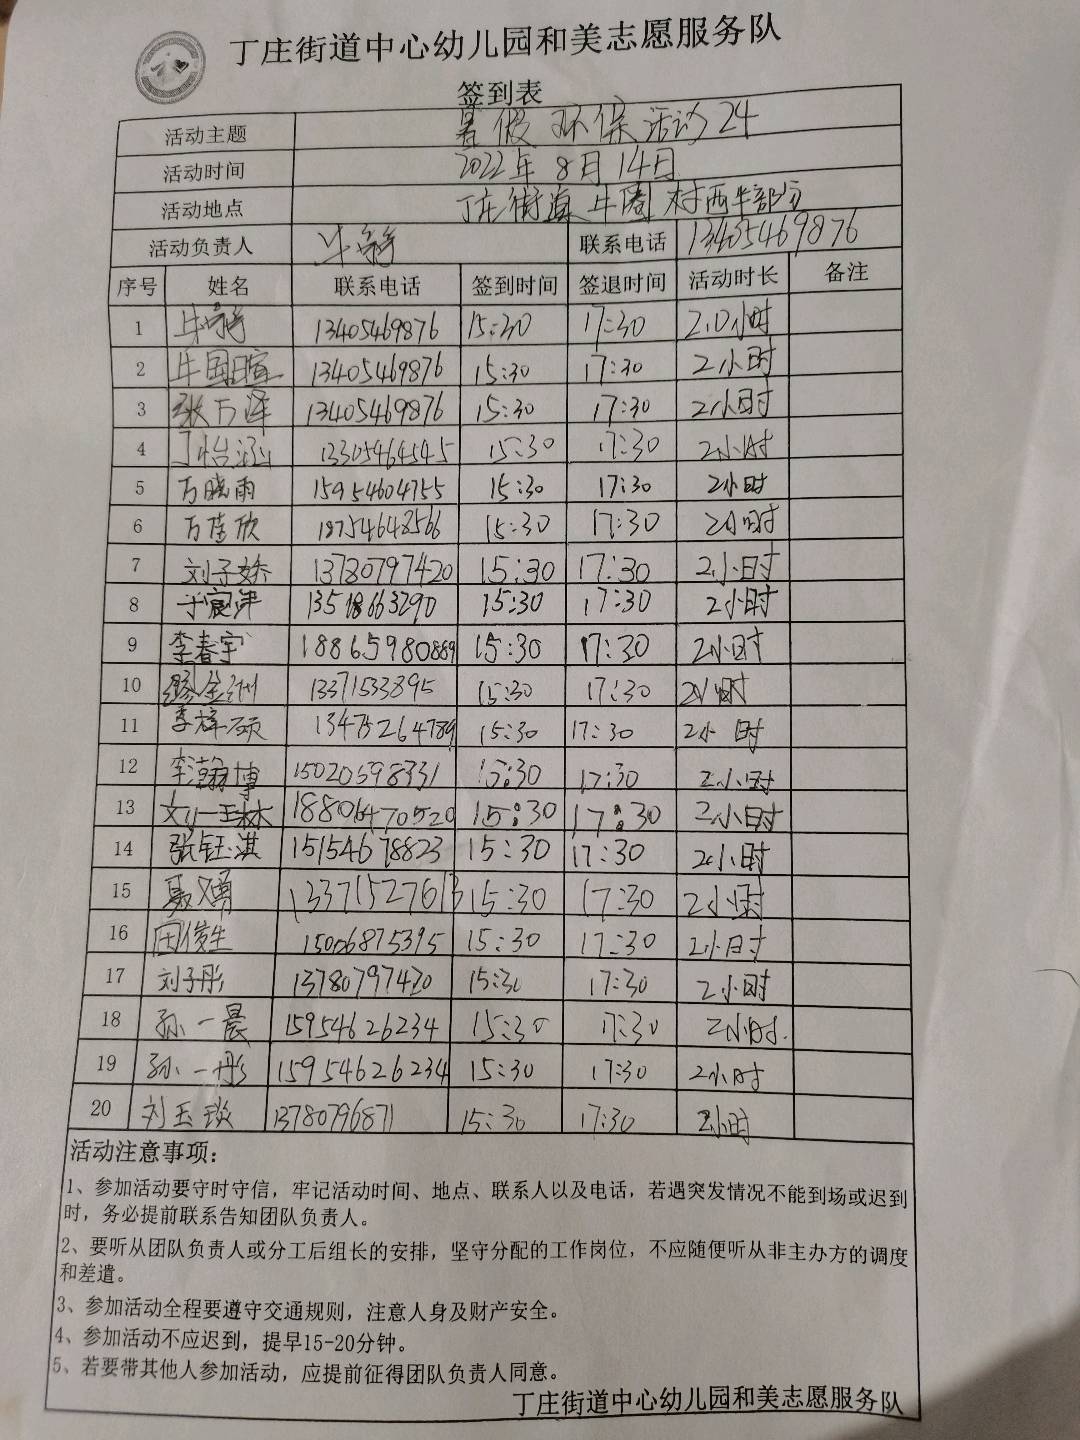 丁庄街道中心幼儿园和美志愿服务队
签到表
活动主题 暑假环保活动24
活动时间 2022年8月14日
活动地点 丁庄街道牛圈村西半部分
活动负责人 联系电话 13405469876
序号 姓名 联系电话 签到时间 签退时间 活动时长 备注
1 13405469876 15:30 17:30 2.0小时
2 牛国暄 13405469876 15:30 17:30 2小时
3 张万泽 13405469876 15:30 17:30 2小时
4 丁怡涵 13305464545 15:30 17:30 2小时
5 万晓雨 15954604755 15:30 17:30 2小时
6 万佳欣 18754648566 15:30 17:30 2小时
7 刘子娇 13780797420 15:30 17:30 2小时
8 于宸洋 13518663290 15:30 17:30 2小时
9 李春宇 18865980889 15:30 17:30 2小时
10 13371533895 15:30 17:30 2小时
11 李梓硕 13475264789 15:30 17:30 2小时
12 李瀚博 15020598331 15:30 17:30 2小时
13 刘一王林 18806470520 15:30 17:30 2小时
14 张钰淇 15154678823 15:30 17:30 2小时
15 13371527613 15:30 17:30 2小时
16 田俊生 15006875395 15:30 17:30 2小时
17 刘子彤 13780797420 15:30 17:30 2小时
18 孙一晨 15954626234 15:30 17:30 2小时
19 孙一彤 15954626234 15:30 17:30 2小时
20 刘玉锬 13780796871 15:30 17:30 2小时
活动注意事项：
1、参加活动要守时守信，牢记活动时间、地点、联系人以及电话，若遇突发情况不能到场或迟到
时，务必提前联系告知团队负责人。
2、要听从团队负责人或分工后组长的安排，坚守分配的工作岗位，不应随便听从非主办方的调度
和差遣。
3、参加活动全程要遵守交通规则，注意人身及财产安全。
4、参加活动不应迟到，提早15-20分钟。
5、若要带其他人参加活动，应提前征得团队负责人同意。
丁庄街道中心幼儿园和美志愿服务队